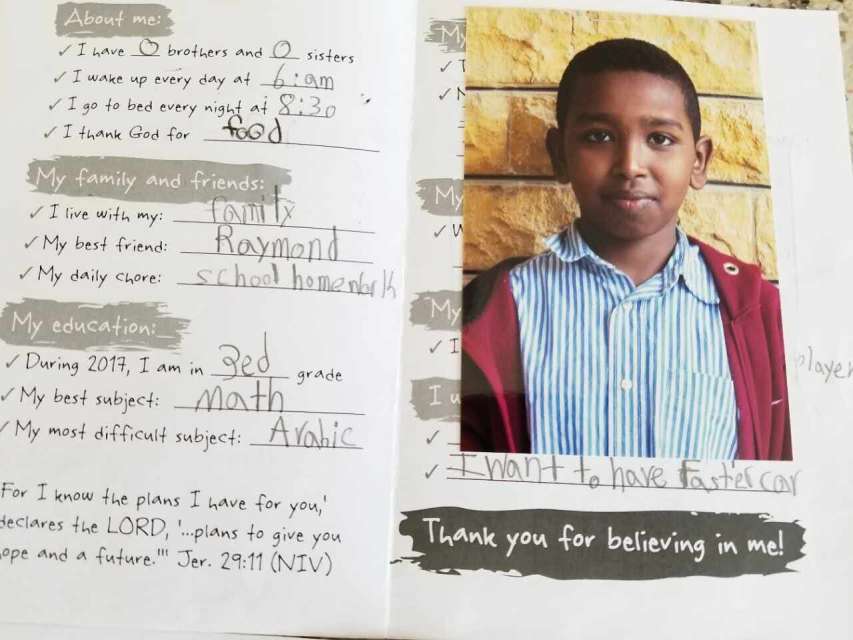 About me:
✓ I have O brothers and O sisters
✓ I wake up every day at 6:am
✓ I go to bed every night at 8:30
✓ I thank God for food
My family and friends:
✓ I live with my: family
✓ My best friend: Raymond
✓ My daily chore: school homework
My education:
✓ During 2017, I am in 3ed grade
✓ My best subject: math
✓ My most difficult subject: Arabic
For I know the plans I have for you,'
declares the LORD, '...plans to give you
ope and a future."' Jer. 29:11 (NIV)
My
My
My
✓ I
I
player
✓ I want to have faster car
Thank you for believing in me!